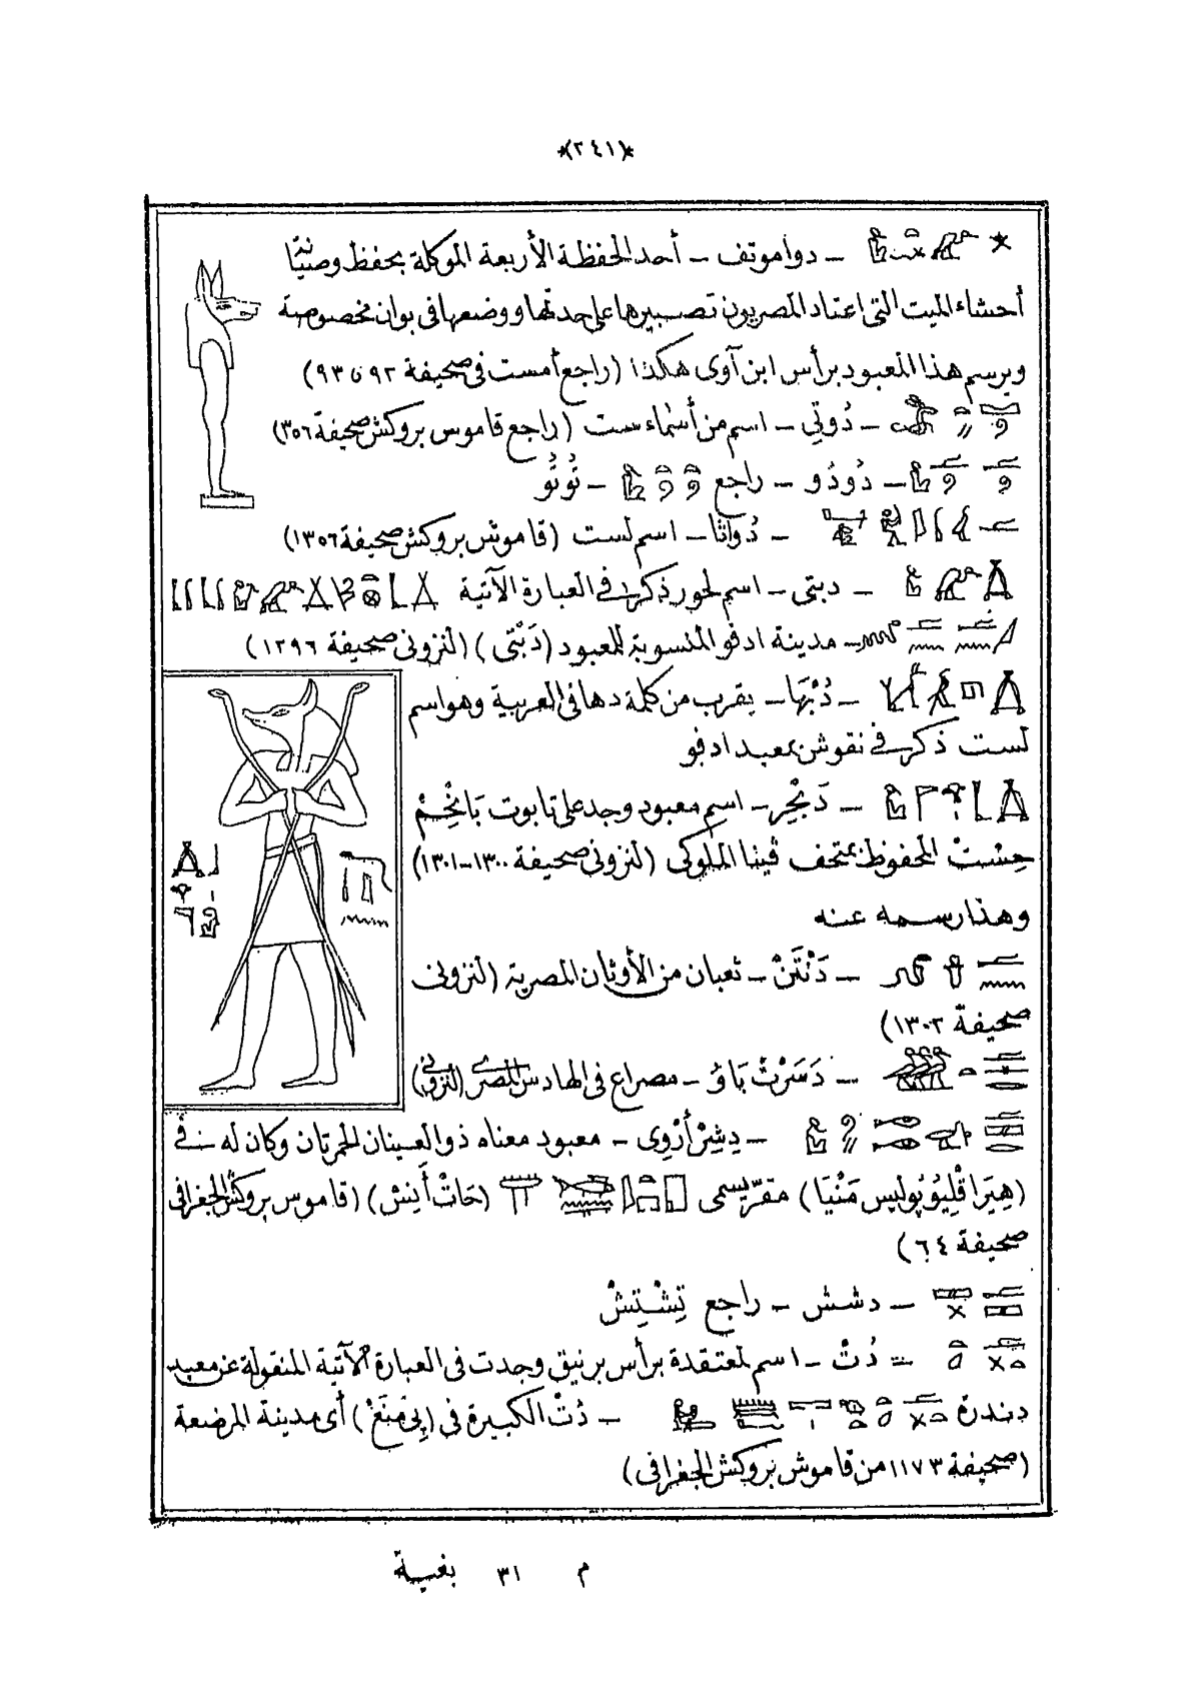 *(٢٤١)*
— دواموتف — أحد الحفظة الأربعة الموكلة بحفظ وصيانة
أحشاء الميت التى اعتاد المصريون تصبيرها على حدتها ووضعها فى بوان مخصوصة
ويرسم هذا المعبود برأس ابن آوى هكذا (راجع أمست فى صحيفة ٩٢ و ٩٣)
— دُوتِي — اسم من أسماء ست (راجع قاموس بروكش صحيفة ٣٥٦)
— دُودُو — راجع — تُوتُو
— دُواثا — اسم لست (قاموش بروكش صحيفة ١٣٥٦)
— دبتى — اسم لحور ذكر فى العبارة الآتية
— مدينة ادفو المنسوبة للمعبود (دَبْتى) (لنزونى صحيفة ١٢٩٦)
— دُبْهَا — يقرب من كلمة دها فى العربية وهو اسم
لست ذكر فى نقوش معبد ادفو
— دَبْحِر — اسم معبود وجد على تابوت بَانْحِمْ
حِسْتْ المحفوظ بمتحف ڤينا الملوكى (لنزونى صحيفة ١٣٠٠–١٣٠١)
وهذا رسمه عنه
— دَنْتَنْ — ثعبان من الأوثان المصرية (لنزونى
صحيفة ١٣٠٢)
— دَسَرْتْ بَاوُ — مصراع فى الهادس المصرى (لنزونى)
— دِشِرْ أَرْوِى — معبود معناه ذو العينان الحمرتان وكان له فى
(هِيرَاقْلِيُوُپُوليس مَنْيَا) مقرّ يسمى (حَاتْ أَنِسْ) (قاموس بروكش الجغرافى
صحيفة ٦٤)
— دشش — راجع تِشْتِشْ
= دُتْ — اسم لمعتقدة برأس برنيق وجدت فى العبارة الآتية المنقولة عن معبد
دندرة — دُتْ الكبيرة فى (پِى مَنَعْ) أى مدينة المرضعة
(صحيفة ١١٧٣ من قاموش بروكش الجغرافى)
م ٣١ بغية